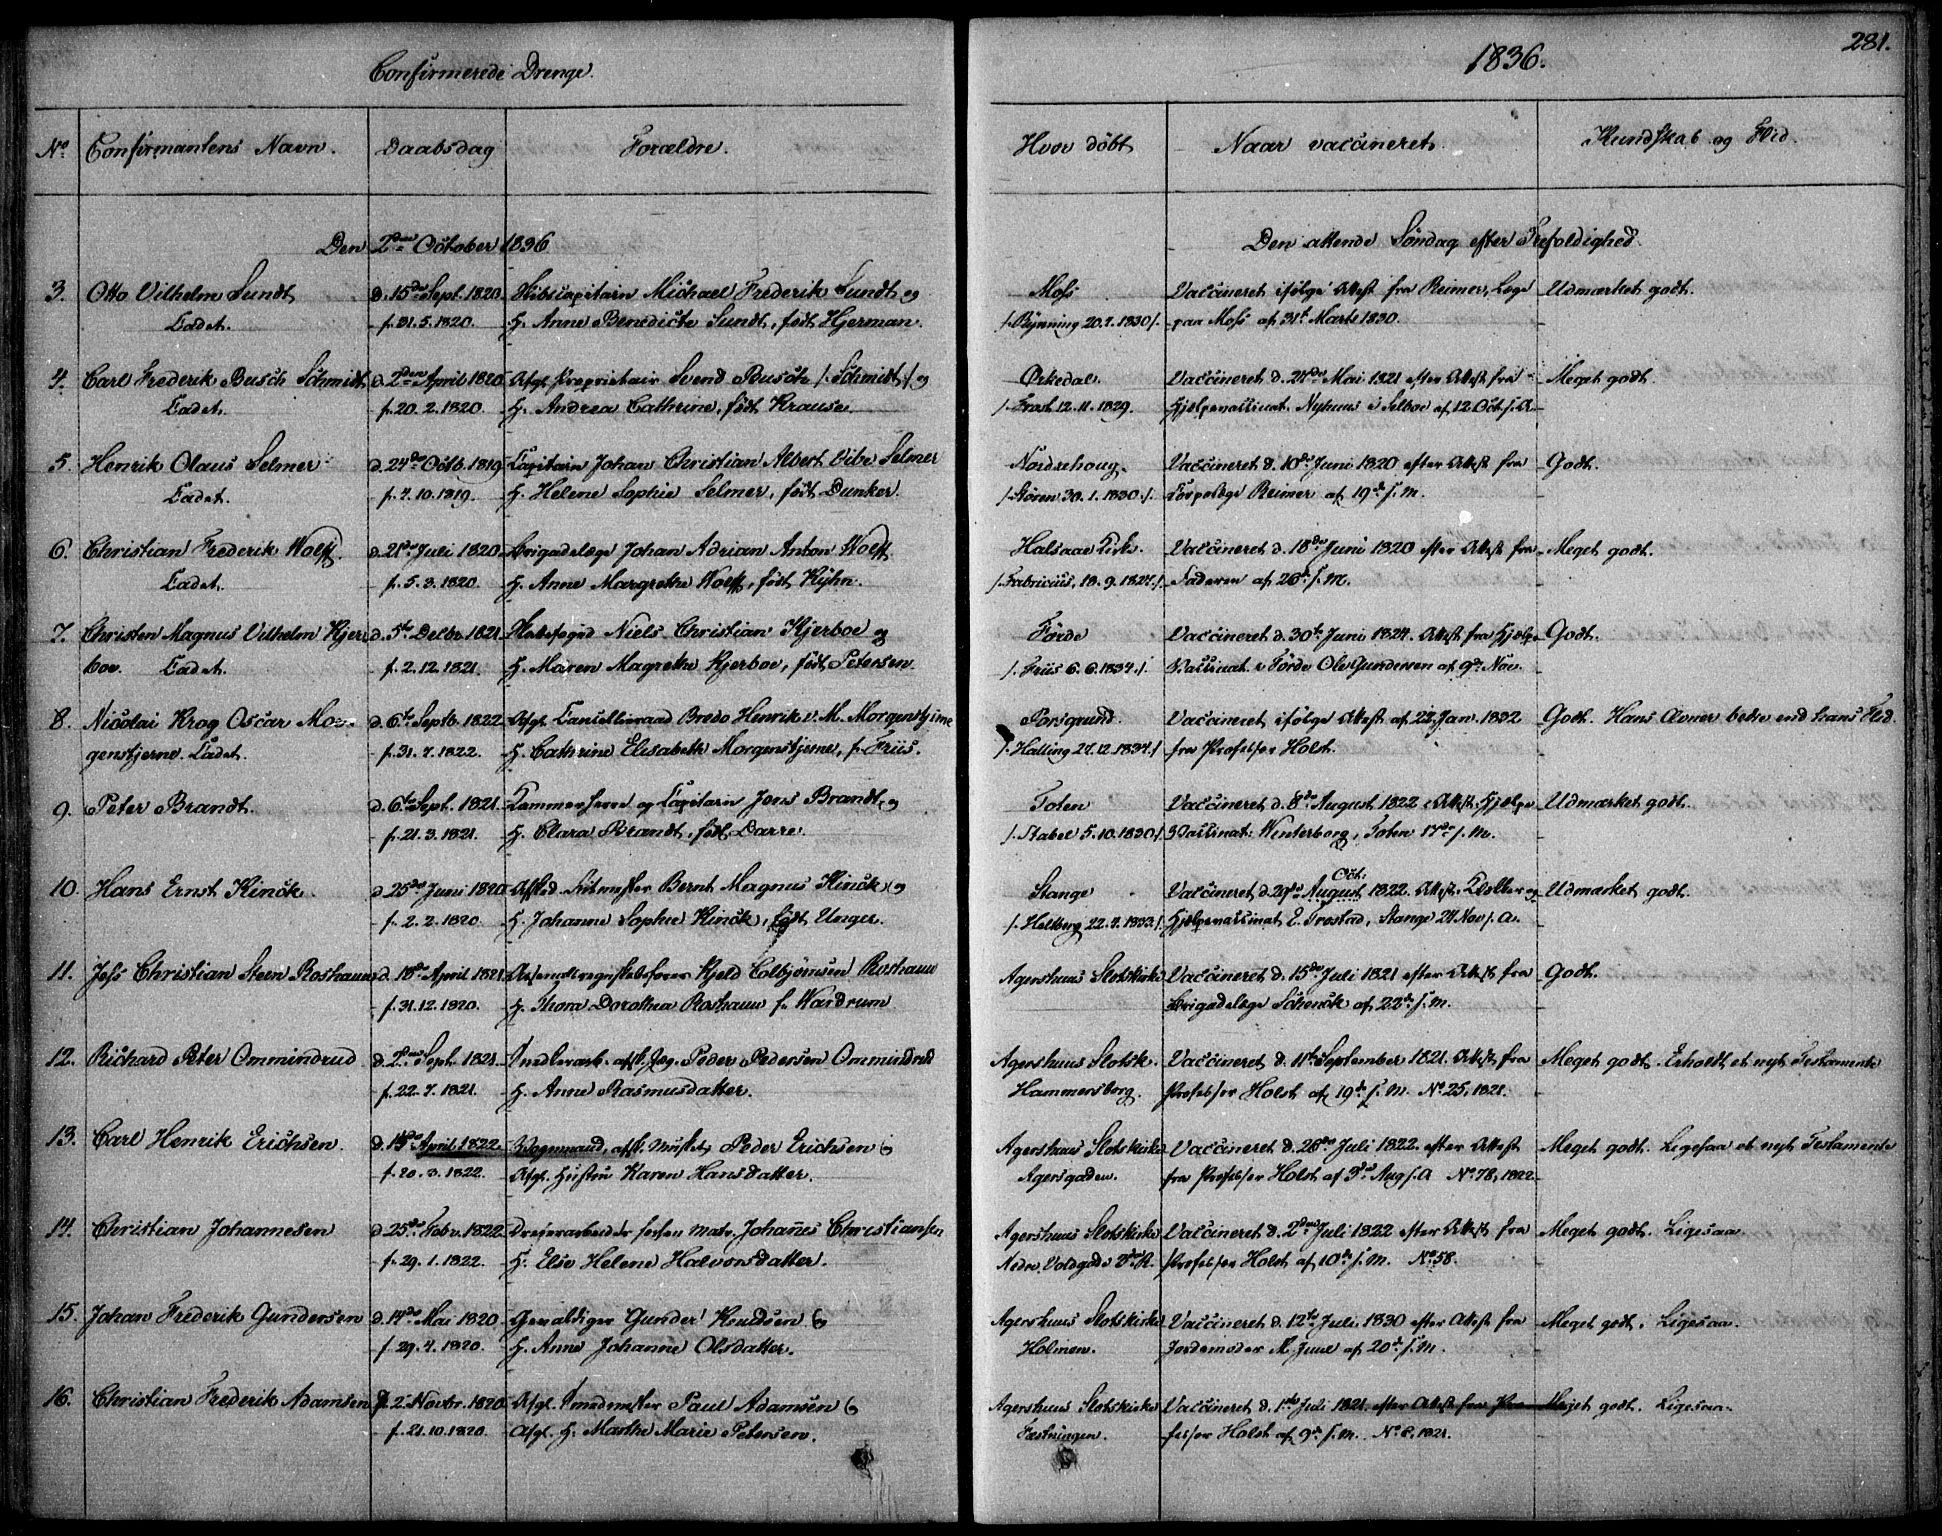 Confirmerede Drenge.
1836.
281.
No. Confirmantens Navn. Daabsdag Forældre. Hvor döbt Naar vaccineret. Kundskab og Flid.
Den 2den October 1836. Den attende Söndag efter Trefoldighed.
3. Otto Vilhelm Sundt d. 15de Sept. 1820. Michael Frederik Sundt og Moss Vaccineret ifölge Attest fra Reimer, Læge Udmærket godt.
Cadet. f. 31.5.1820. H. Anne Benedicte Sundt, födt Hjerman. /: Bynning 20.7.1830 :/ paa Moss af 31te Marts 1830.
4. Carl Frederik Busch Schmidt, d. 2den April 1820 Afg. Proprietair Svend Busch /: Schmidt :/ og Örkedal. Vaccineret d. Mai 1821 efter Attest fra Meget godt.
Cadet. f. 20.2.1820. H. Andrea Cathrine, födt Krause /: 12.11.1829. Hjelpevaccinat. Nyhuus i Selboe af 12 Oct. s. A.
5. Henrik Olaus Selmer d. 24de Octb. 1819 Capitain Johan Christian Albert Vibe Selmer Nordrehoug. Vaccineret d. 10de Juni 1820 efter Attest fra Godt.
Cadet. f. 7.10.1819. H. Helene Sophie Selmer, födt Dunker. /: Stören 30.1.1830 :/ Corpslæge Reimer af 19de s. M.
6. Christian Frederik Wolff. d. 21de Juli 1820. Brigadelæge Johan Adrian Anton Wolff, Halsaae Kirke. Vaccineret d. 18de Juni 1820 efter Attest fra Meget godt.
Cadet. f. 5.3.1820. H. Anne Margrethe Wolff, födt Kyhn. /: Fabricius, 18.9.1827 :/ Faderen af 26de s. M.
7. Christen Magnus Vilhelm Kjer- d. 5te Decbr. 1821. Niels Christian Kjerboe og Förde Vaccineret d. 30te Juni 1824. Attest fra Hjelpe- Godt.
boe. Cadet. f. 2.12.1821. H. Maren Magrethe Kjerboe, födt Petersen /: Friis 6.6.1834 :/ Vaccinat. i Förde Ole Gundersen af 9de Nov.
8. Nicolai Krog Oscar Mor- d. 6te Septb. 1822. Afg. Cancelliraad Bredo Henrik v. M. Morgenstjerne Porsgrund. Vaccineret ifölge Attest af 22 Jan. 1832 Godt. Hans Ævner bedre end hans Flid.
genstjerne. Cadet. f. 31.7.1822. H. Cathrine Elisabeth Morgenstjerne, f. Friis. /: Halling 27.12.1834 :/ fra Professor Holst.
9. Peter Brandt. d. 6te Sept. 1821. Kammerherre og Capitain Jens Brandt og Toten Vaccineret d. 8de August 1822. Attest. Hjelpe- Udmærket godt.
f. 21.3.1821. H. Clara Brandt, födt Darre. /: Stabel 5.10.1830 :/ Vaccinat: Winterborg, Toten 17de s. M.
10. Hans Ernst Kinck d. 25de Juni 1820. Afsked. Ritmester Bernt Magnus Kinck og Stange Vaccineret d. 29de August Oct. 1822. Attest. Klokker og Udmærket godt.
f. 2.2.1820. H. Johanne Sophie Kinck, födt Unger. /: Heltberg 22.7.1833 :/ Hjelpevaccinat E. Frostad, Stange 24 Nov. s. A.
11. Jess Christian Steen Roshauw d. 18de April 1821. Arsenalregnskabsförer Kjeld Colbjörnsen Roshauw Agershuus Slotskirke Vaccineret d. 15de Juli 1821 efter Attest fra Godt.
f. 31.12.1820. H. Thora Dorothea Roshauw f. Wardrum Brigadelæge Schenck af 22de s. M.
12. Richard Peter Ommindrud d. 2den Sept. 1821. afsk. Jæg. Peder Pedersen Ommindrud Agershuus Slotsk. Vaccineret d. 11te September 1821. Attest fra Meget godt. Erholdt et nyt Testamente
f. 22.7.1821. H. Anne Rasmusdatter. Hammersborg. Professor Holst af 19de s. M. No. 25, 1821.
13. Carl Henrik Erichsen. d. 14de April 1822. Vognmand, afsk. Musket. Peder Erichsen og Agershuus Slotskirke Vaccineret d. 26de Juli 1822. efter Attest Meget godt. Ligesaa et nyt Testamente
f. 20.3.1822. Afg. Hustru Karen Hansdatter. Agersgaden. fra Professor Holst af 3de Aug. s. A. No. 78, 1822.
14. Christian Johannesen d. 25de Febr. 1822. Dreierarbeider Johañes Christiansen Agershuus Slotskirke Vaccineret d. 2den Juli 1822 efter Attest fra Meget godt. Ligesaa.
f. 29.1.1822. H. Else Helene Halvorsdatter. Nedre Voldgade Professor Holst af 10de s. M. No. 58.
15. Johan Frederik Gundersen d. 14de Mai 1820. Gevaldiger Gunder Knudsen og Agershuus Slotskirke Vaccineret d. 12te Juli 1830 efter Attest fra Meget godt. Ligesaa.
f. 29.4.1820. H. Anne Johanne Olsdatter. Holmen. Jordemoder M. Juul af 20de s. M.
16. Christian Frederik Adamsen d. 2. Novbr. 1820. Afg. Smedmester Paul Adamsen og Agershuus Slotskirke Vaccineret d. 1ste Juli 1821. efter Attest fra Pro- Meget godt. Ligesaa.
f. 21.10.1820. Afg. H. Marthe Marie Petersen. Fæstningen. fessor Holst af 9de s. M. No. 8, 1821.